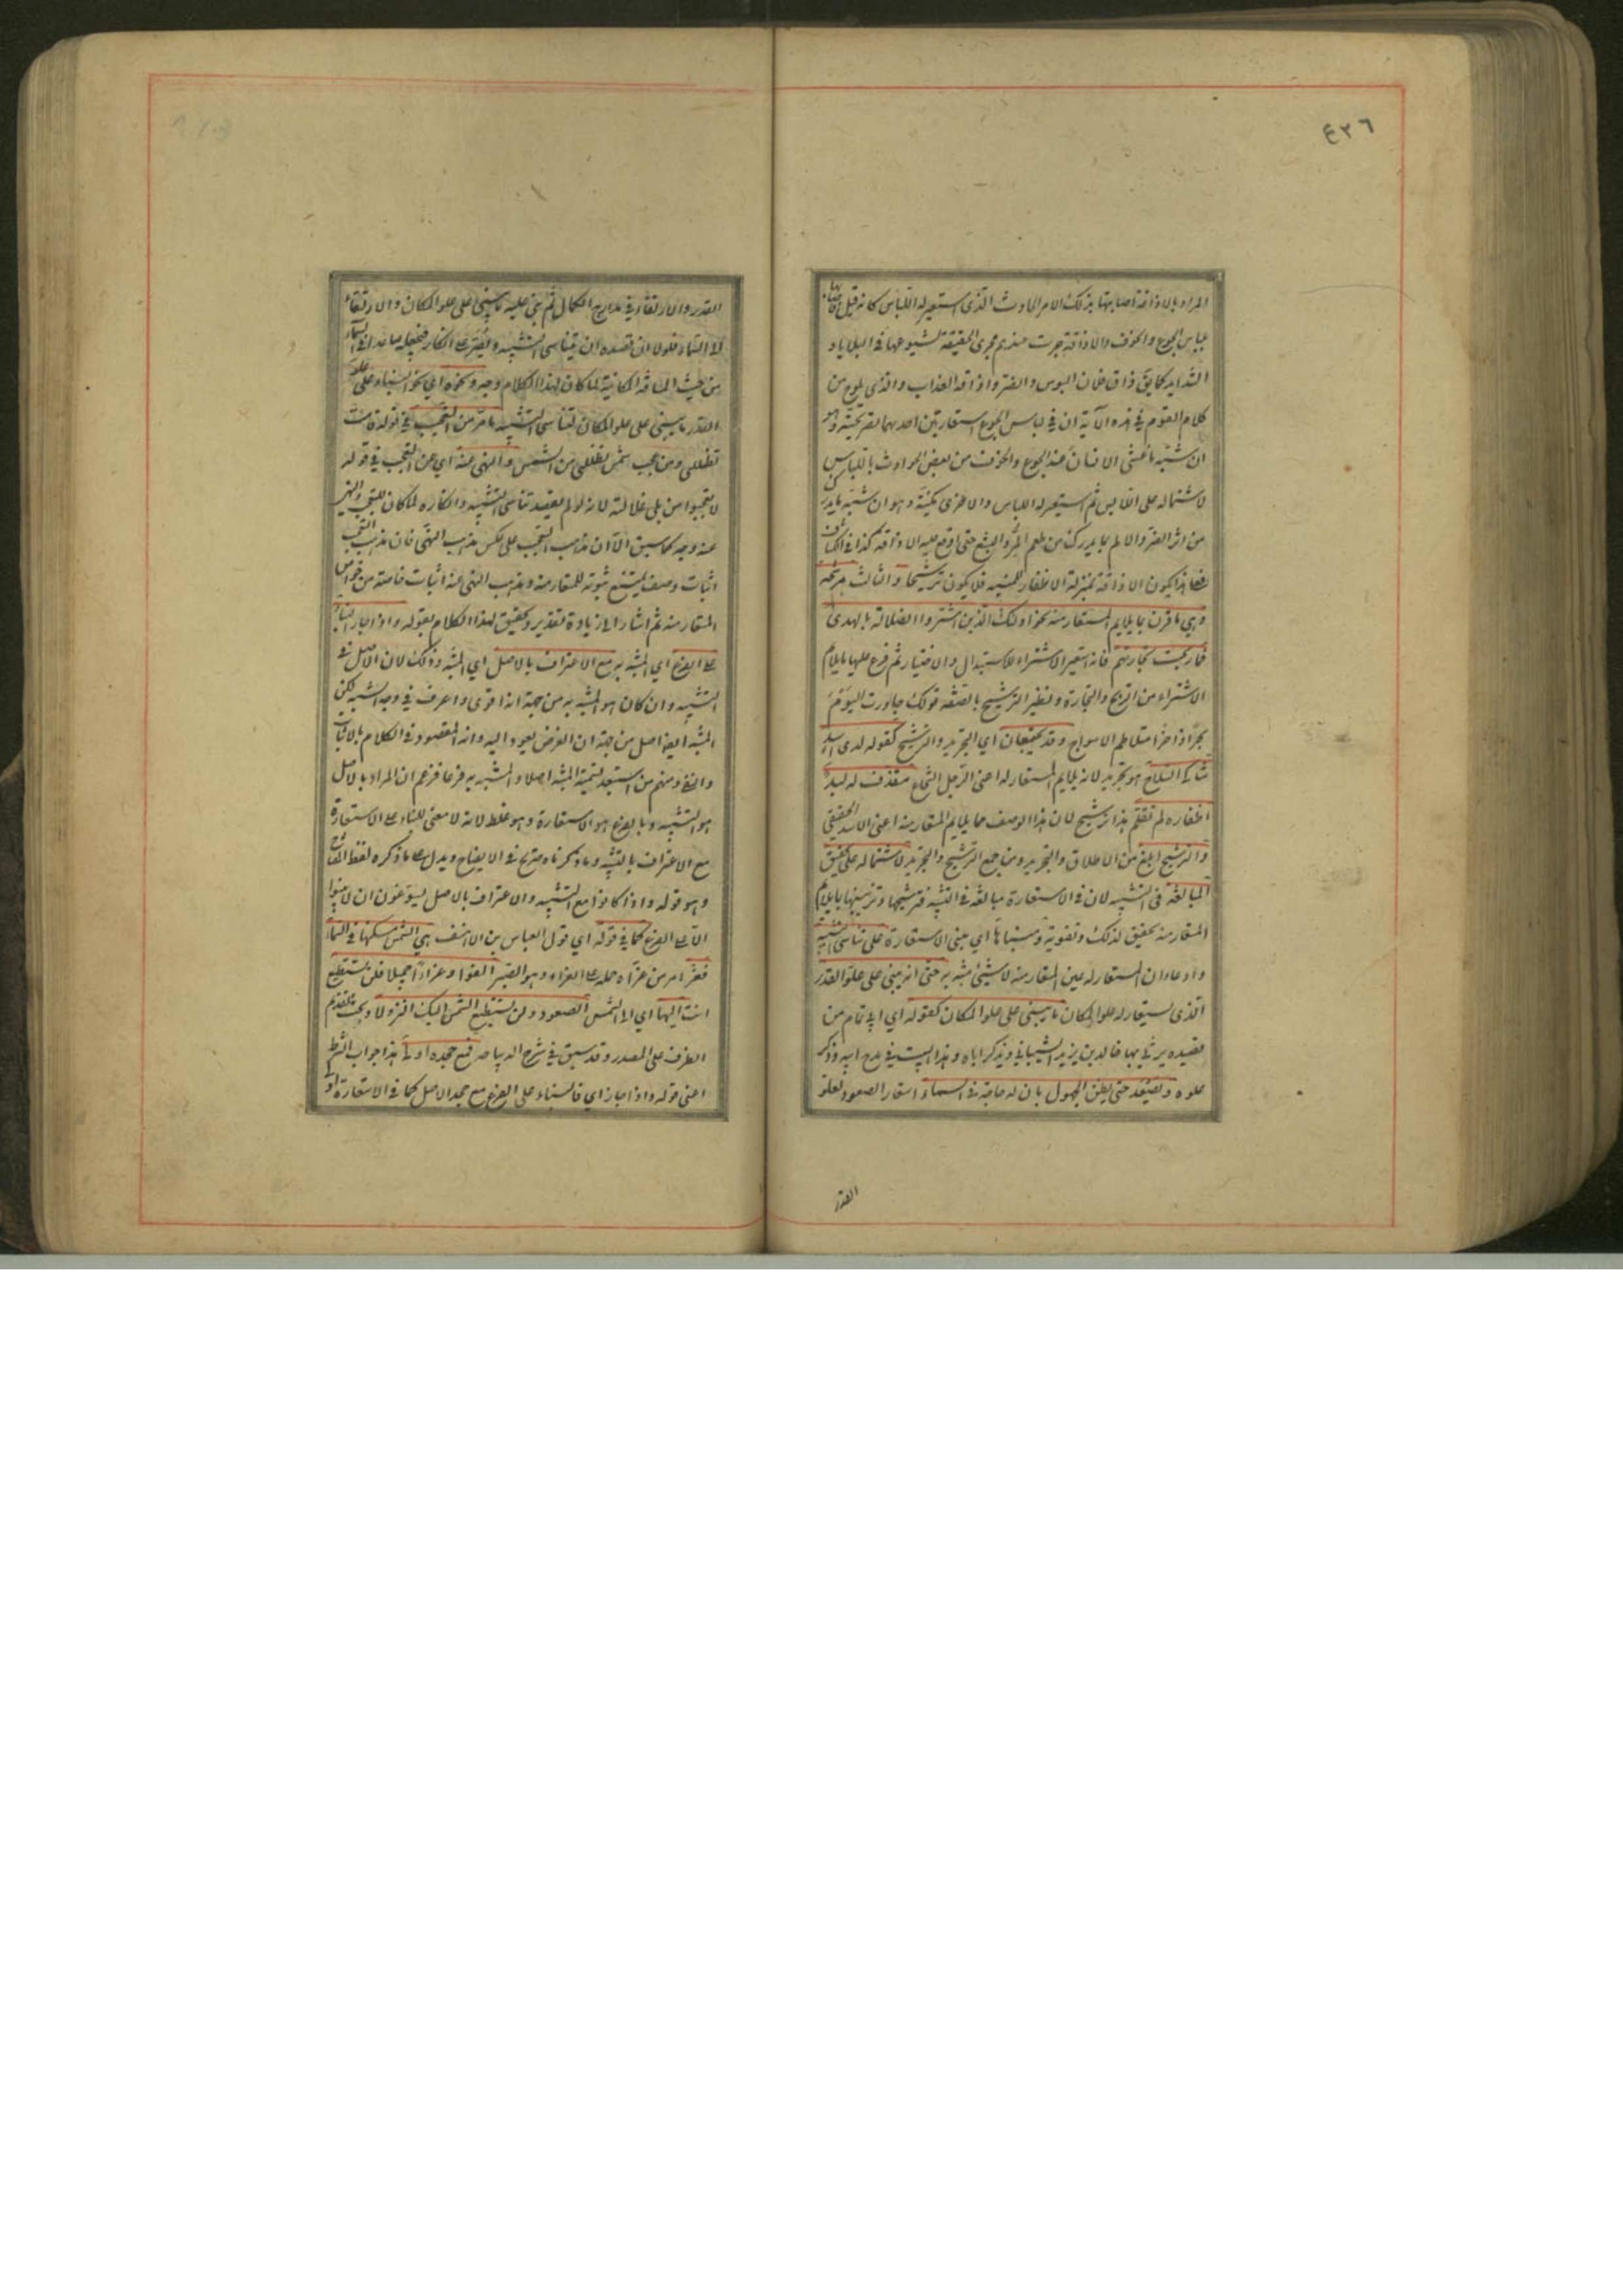 ٤٢٦
المراد بالاذاقة اصابتها بذلك الامر الحادث الذى استعير له اللباس كانه قيل فاصابها
بلباس الجوع والخوف والاذاقة جرت عندهم مجرى الحقيقة لشيوعها فى البلايا و
الشدايد كما يق ذاق فلان البوس والضر واذاقه العذاب والذى يلوح من
كلام القوم فى هذه الآية ان فى لباس الجوع استعارتين احديهما تصريحية وهو
ان شبه ما غشى الانسان عند الجوع والخوف من بعض الحوادث باللباس
لاشتماله على اللابس ثم استعير له اللباس والاخرى مكنية وهو ان شبه ما يدرك
من اثر الضر والالم بما يدرك من طعم المر والبشع حتى اوقع عليه الاذاقة كذا فى الكشاف
فعلى هذا يكون الاذاقة بمنزلة الاظفار للمنية فلا يكون ترشيحا والثالث مرشحة
وهى ما قرن بما يلايم المستعار منه نحو اولئك الذين اشتروا الضلالة بالهدى
فما ربحت تجارتهم فانه استعير الاشتراء للاستبدال والاختيار ثم فرع عليها ما يلايم
الاشتراء من الربح والتجارة ونظير الترشيح بالصفة قولك جاورت اليوم
بحرا زاخرا متلاطم الامواج وقد يجتمعان اى التجريد والترشيح كقوله لدى اسد
شاكى السلاح هو تجريد لانه يلايم المستعار له اعنى الرجل الشجاع مقذف له لبد
اظفاره لم تقلم هذا ترشيح لان هذا الوصف مما يلايم المستعار منه اعنى الاسد الحقيقى
والترشيح ابلغ من الاطلاق والتجريد ومن جمع الترشيح والتجريد لاشتماله على تحقيق
المبالغة فى التشبيه لان فى الاستعارة مبالغة فى التشبيه فترشيحها وتزيينها بما يلايم
المستعار منه تحقيق لذلك وتقوية ومبناها اى مبنى الاستعارة على تناسى التشبيه
وادعاء ان المستعار له عين المستعار منه لا شيئ مشبه به حتى انه يبنى على علو القدر
الذى يستعار له علو المكان ما يبنى على علو المكان كقوله اى ابى تمام من
قصيدة يرثى بها خالد بن يزيد الشيبانى ويذكر اباه وهذا البيت فى مدح ابيه وذكر
علوه ويصعد حتى يظن الجهول بان له حاجة فى السماء استعار الصعود لعلو
القدر
القدر والارتقاء فى مدارج الكمال ثم بنى عليه ما يبنى على علو المكان والارتقاء
الى السماء فلولا ان قصده ان يتناسى التشبيه ويصر على انكاره فيجعله صاعدا فى السماء
من حيث المسافة المكانية لما كان لهذا الكلام وجه ونحوه اى نحو البناء على علو
القدر ما يبنى على علو المكان لتناسى التشبيه ما مر من التعجب فى قوله قامت
تظللنى ومن عجب شمس تظللنى من الشمس والنهى عنه اى عن التعجب فى قوله
لا تعجبوا من بلى غلالته لانه لو لم يقصد تناسى التشبيه وانكاره لما كان للتعجب والنهى
عنه وجه كما سبق الا ان مذهب التعجب على عكس مذهب النهى فان مذهب التعجب
اثبات وصف يمتنع ثبوته للمستعار منه ومذهب النهى عنه اثبات خاصة من خواص
المستعار منه ثم اشار الى زيادة تقرير وتحقيق لهذا الكلام بقوله واذا جاز البناء
على الفرع اى المشبه به مع الاعتراف بالاصل اى المشبه وذلك لان الاصل فى
التشبيه وان كان هو المشبه به من جهة انه اقوى واعرف فى وجه الشبه لكن
المشبه ايضا اصل من جهة ان الغرض يعود اليه وانه المقصود فى الكلام بالاثبات
والنفى ومنهم من استبعد تسمية المشبه اصلا والمشبه به فرعا فزعم ان المراد بالاصل
هو التشبيه وبالفرع هو الاستعارة وهو غلط لانه لا معنى للبناء على الاستعارة
مع الاعتراف بالتشبيه وما ذكرناه صريح فى الايضاح ويدل على ما ذكره لفظ المفتاح
وهو قوله واذا كانوا مع التشبيه والاعتراف بالاصل يسوغون ان لا يبنوا
الا على الفرع كما فى قوله اى قول العباس بن الاحنف هى الشمس مسكنها فى السماء
فعز امر من عزاه حمله على العزاء وهو الصبر الفؤاد عزاء جميلا فلن تستطيع
انت اليها اى الى الشمس الصعود ولن تستطيع الشمس اليك النزولا وبحث تقديم
الظرف على المصدر وقد سبق فى شرح الديباجه فمع جحده اولى هذا جواب الشرط
اعنى قوله واذا جاز اى فالبناء على الفرع مع جحد الاصل كما فى الاستعارة اولى